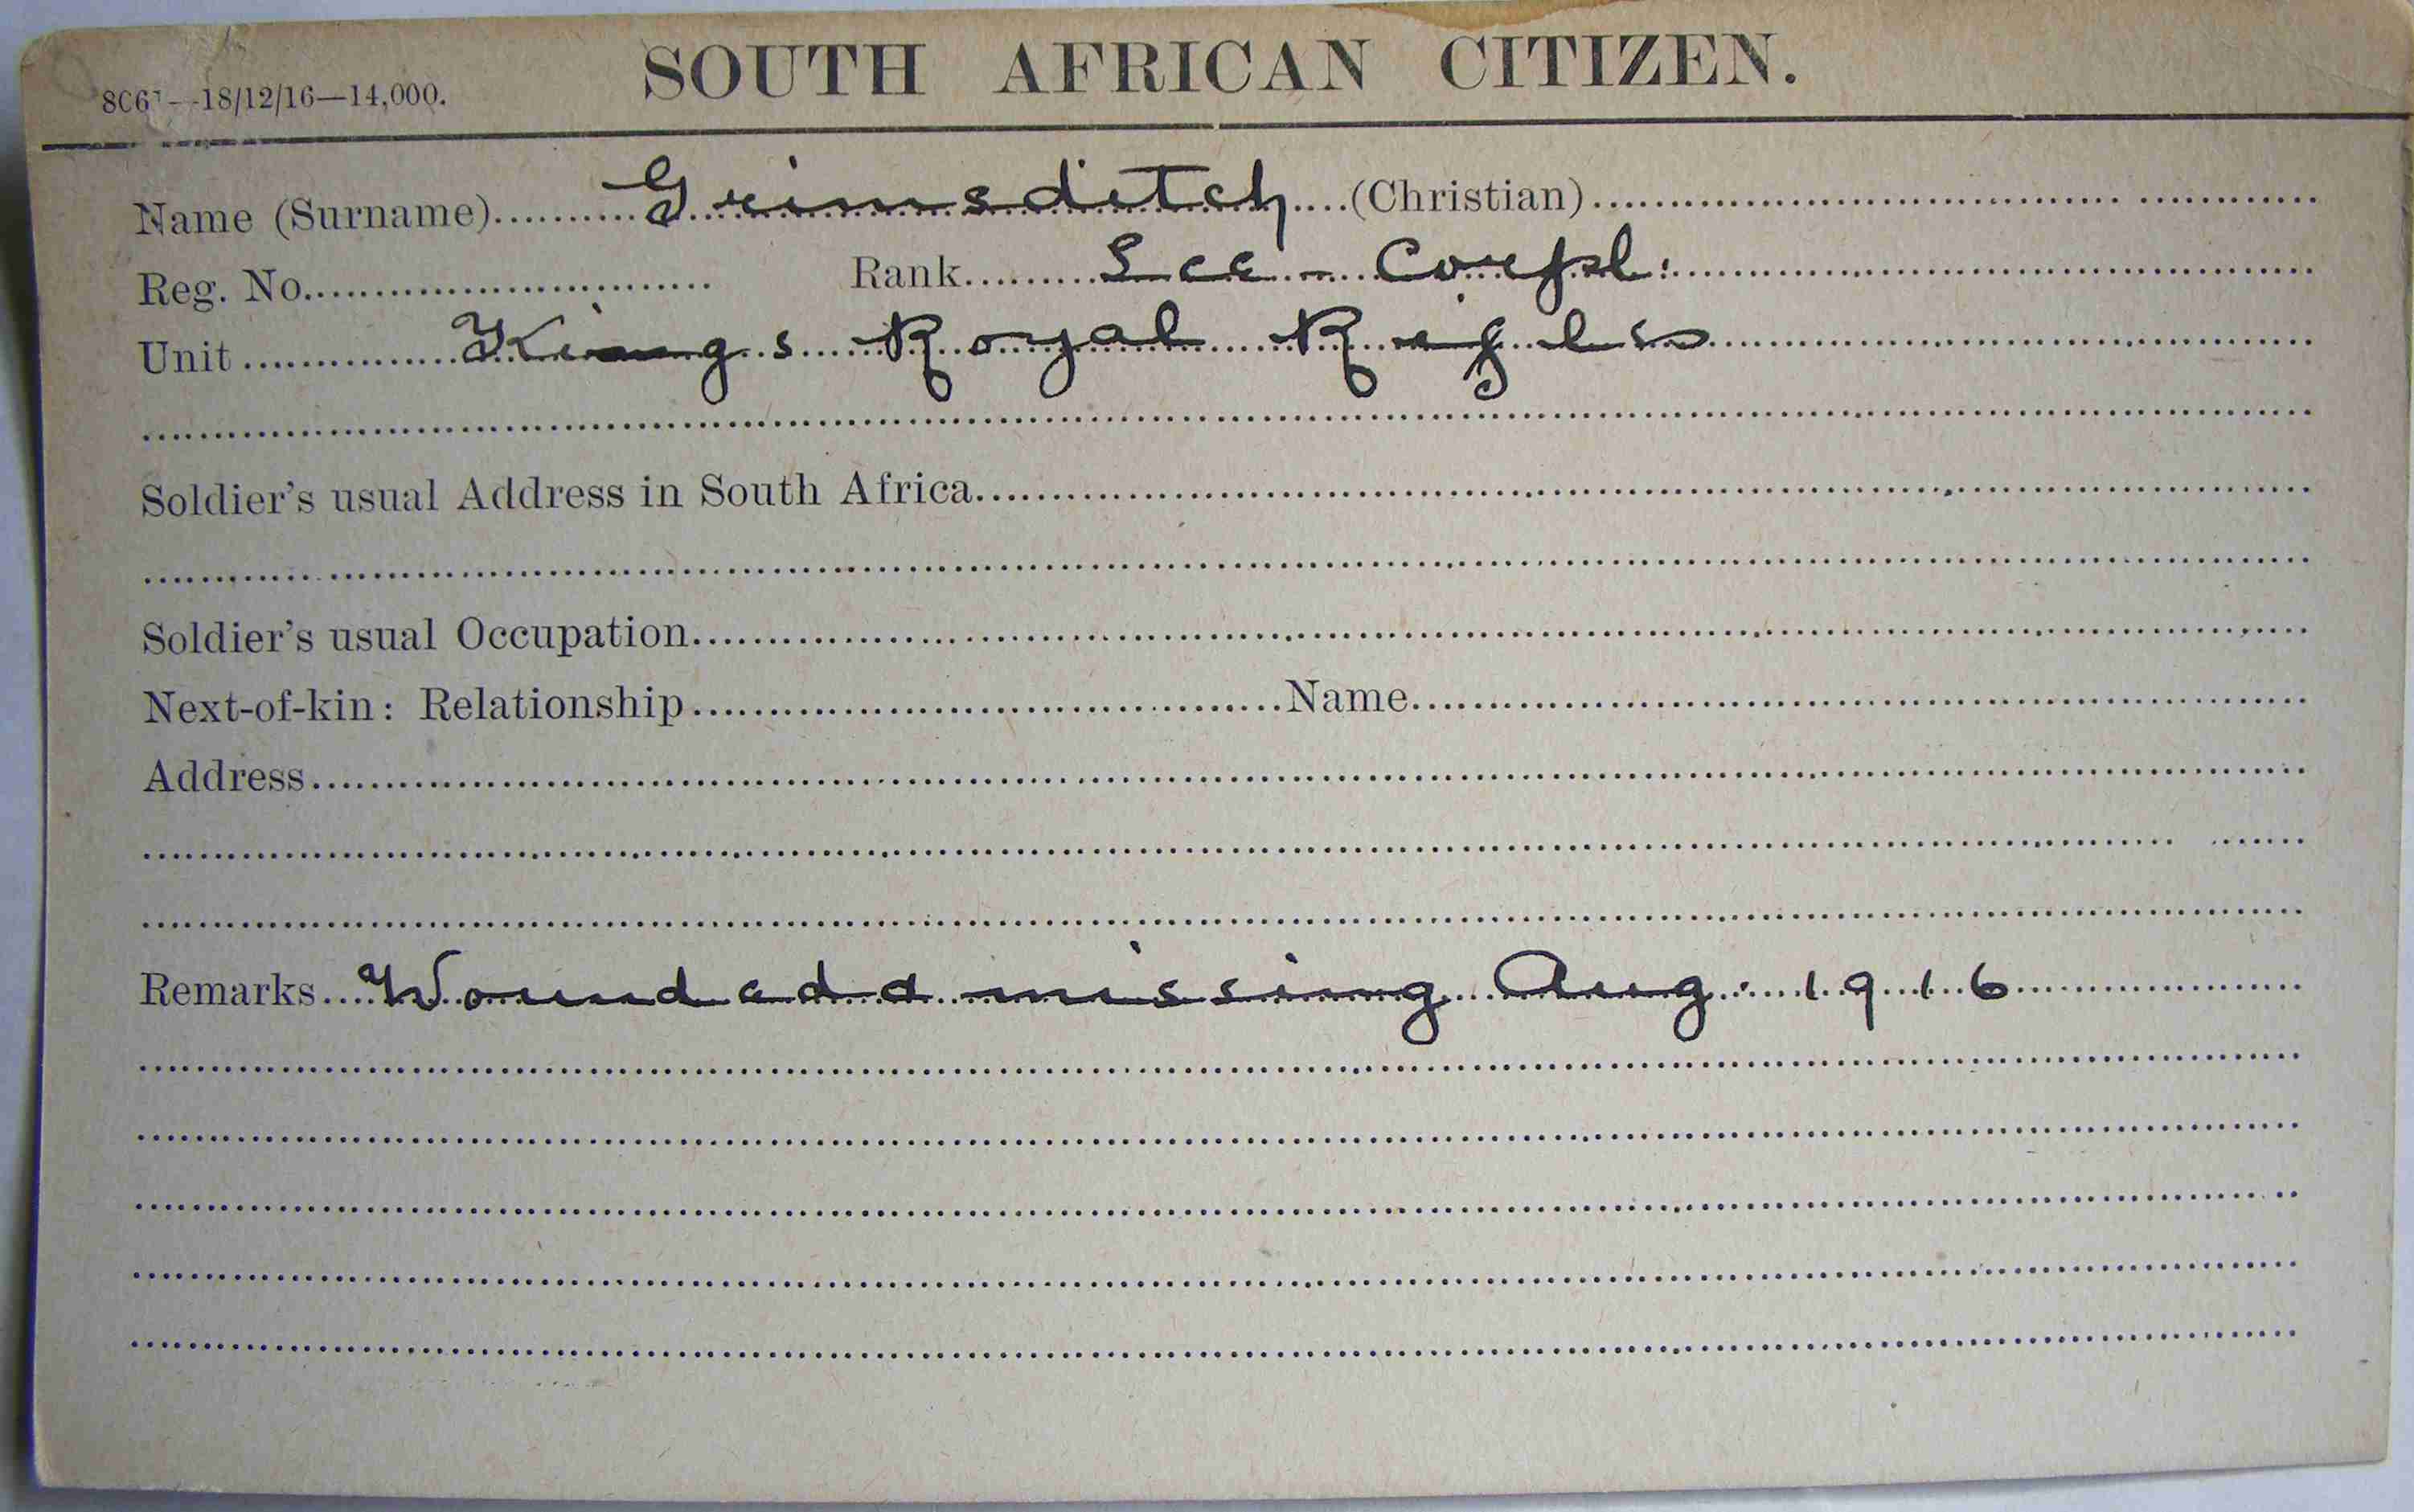 SOUTH AFRICAN CITIZEN.
18/12/16—14,000.
Name (Surname) Grimsditch (Christian)
Reg. No. Rank Lce - Corpl:
Unit Kings Royal Rifles
Soldier's usual Address in South Africa
Soldier's usual Occupation
Next-of-kin: Relationship Name
Address
Remarks Wounded & missing Aug: 1916